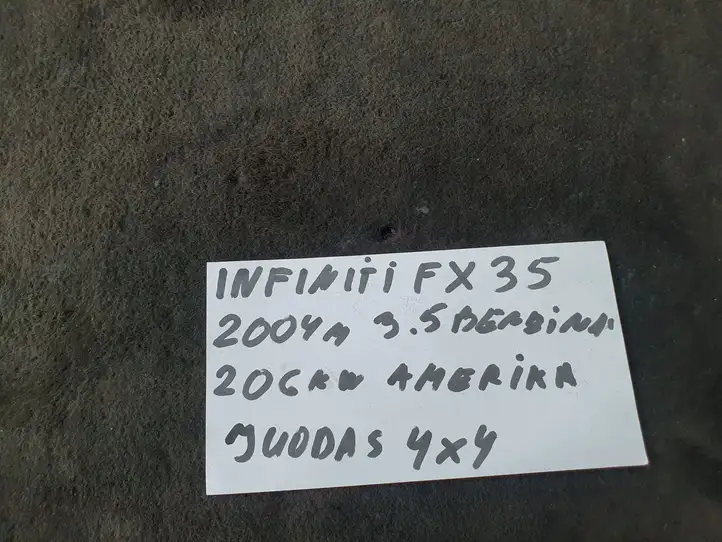 INFINITI FX 35
2004m 3.5 BENZINAS
206KW AMERIKA
JUODAS 4x4